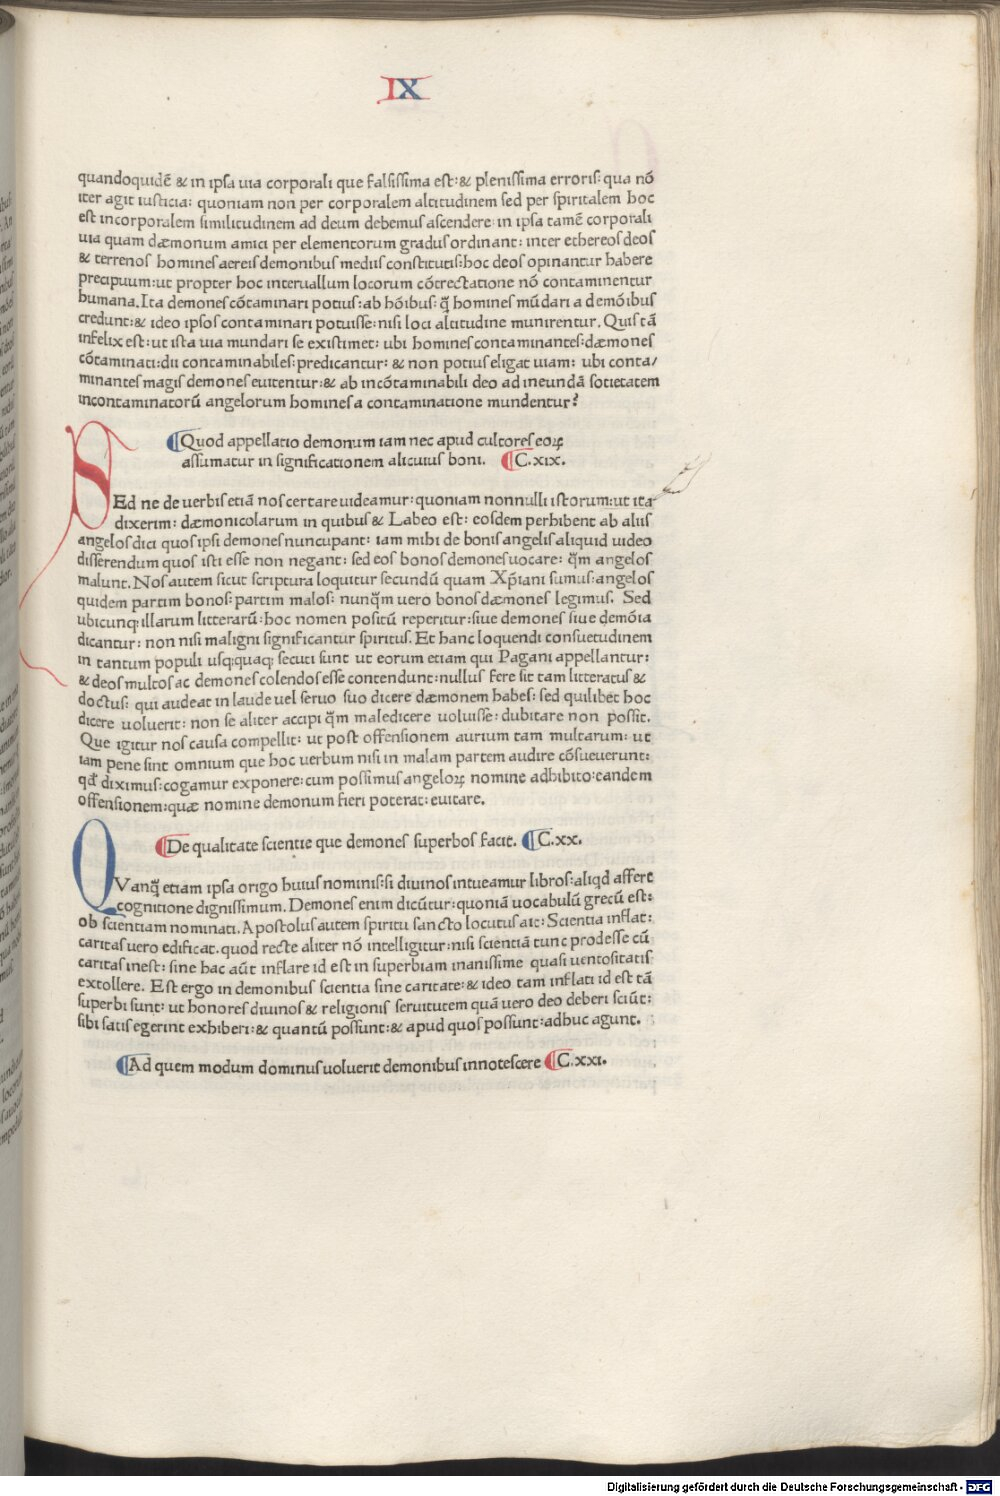 IX
quandoquidē & in ipsa uia corporali que falsissima est: & plenissima erroris: qua nō
iter agit iusticia: quoniam non per corporalem altitudinem sed per spiritalem hoc
est incorporalem similitudinem ad deum debemus ascendere: in ipsa tamē corporali
uia quam dæmonum amici per elementorum gradus ordinant: inter ethereos deos
& terrenos homines aereis demonibus mediis constitutis: hoc deos opinantur habere
precipuum: ut propter hoc interuallum locorum cōtrectatione nō contaminentur
humana. Ita demones cōtaminari potius: ab hōibus: q̄ homines mūdari a demōibus
credunt: & ideo ipsos contaminari potuisse: nisi loci altitudine munirentur. Quis tā
infelix est: ut ista uia mundari se existimet: ubi homines contaminantes: dæmones
cōtaminati: dii contaminabiles: predicantur: & non potius eligat uiam: ubi conta/
minantes magis demones euitentur: & ab incōtaminabili deo ad ineundā societatem
incontaminatorū angelorum homines a contaminatione mundentur?
¶Quod appellatio demonum iam nec apud cultores eoꝝ
assumatur in significationem alicuius boni. ¶C.xix.
SEd ne de uerbis etiā nos certare uideamur: quoniam nonnulli istorum: ut ita
dixerim: dæmonicolarum in quibus & Labeo est: eosdem perhibent ab aliis
angelos dici quos ipsi demones nuncupant: iam mihi de bonis angelis aliquid uideo
disserendum quos isti esse non negant: sed eos bonos demones uocare: q̄m angelos
malunt. Nos autem sicut scriptura loquitur secundū quam Xp̄iani sumus: angelos
quidem partim bonos: partim malos: nunq̄m uero bonos dæmones legimus. Sed
ubicunq; illarum litterarū: hoc nomen positū reperitur: siue demones siue demōia
dicantur: non nisi maligni significantur spiritus. Et hanc loquendi consuetudinem
in tantum populi usq;quaq; secuti sunt ut eorum etiam qui Pagani appellantur:
& deos multos ac demones colendos esse contendunt: nullus fere sit tam litteratus &
doctus: qui audeat in laude uel seruo suo dicere dæmonem habes: sed quilibet hoc
dicere uoluerit: non se aliter accipi q̄m maledicere uoluisse: dubitare non possit.
Que igitur nos causa compellit: ut post offensionem aurium tam multarum: ut
iam pene sint omnium que hoc uerbum nisi in malam partem audire cōsueuerunt:
qd̄ diximus: cogamur exponere: cum possimus angeloꝝ nomine adhibito: eandem
offensionem: quæ nomine demonum fieri poterat: euitare.
¶De qualitate scientie que demones superbos facit. ¶C.xx.
QVanq̄ etiam ipsa origo huius nominis: si diuinos intueamur libros: aliqd affert
cognitione dignissimum. Demones enim dicūtur: quoniā uocabulū grecū est:
ob scientiam nominati. Apostolus autem spiritu sancto locutus ait: Scientia inflat:
caritas uero edificat. quod recte aliter nō intelligitur: nisi scientiā tunc prodesse cū
caritas inest: sine hac aūt inflare id est in superbiam inanissime quasi uentositatis
extollere. Est ergo in demonibus scientia sine caritate: & ideo tam inflati id est tā
superbi sunt: ut honores diuinos & religionis seruitutem quā uero deo deberi sciūt:
sibi satis egerint exhiberi: & quantū possunt: & apud quos possunt: adhuc agunt.
¶Ad quem modum dominus uoluerit demonibus innotescere ¶C.xxi.
Digitalisierung gefördert durch die Deutsche Forschungsgemeinschaft - DFG